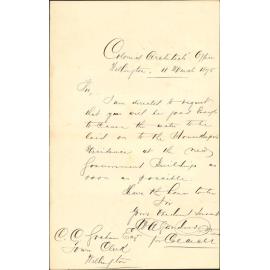 Colonial Architects Office
Wellington 11 March 1875
Sir,
I am directed to request
that you will be good enough
to cause the water to be
laid on to the Housekeepers
Residence at the new
Government Buildings as
soon as possible
I have the honor to be
Sir
Your obedient Servant
for Col Arch
C. C. Graham Esq
Town Clerk
Wellington